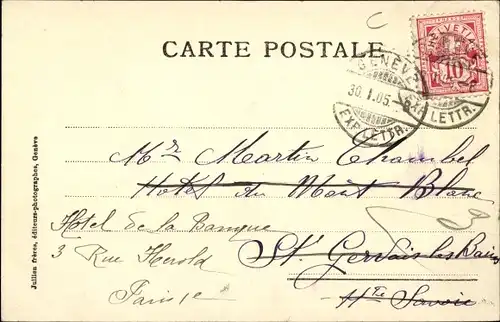 CARTE POSTALE
HELVETIA
10
GENÈVE
30.I.05.
EXP. LETTR.
EXP. LETTR.
Mr Martin Chambel
Hotel du Mont Blanc
St Gervais les Bains
Hte Savoie
Hotel de la Banque
3 Rue Herold
Paris 1e
Jullien frères, éditeurs-photographes, Genève